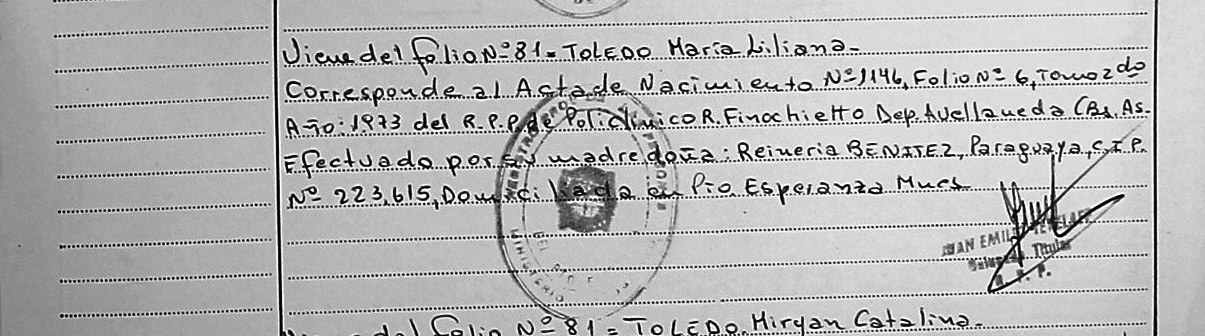 Viene del folio Nº 81 = TOLEDO María Liliana.-
Corresponde al Acta de Nacimiento Nº 1146, Folio Nº 6, Tomo 2do
Año: 1973 del R.P.P. de Policlínico R. Finochietto Dep. Avellaneda (Bs. As.
Efectuado por su madre doña: Reineria BENITEZ, Paraguaya, C.I.P.
Nº 223.615, Domiciliada en Pto Esperanza
JUAN EMIL
Titular
R. P. P.
MINISTERIO DEL
Viene del Folio Nº 81 = TOLEDO, Miryan Catalina.-